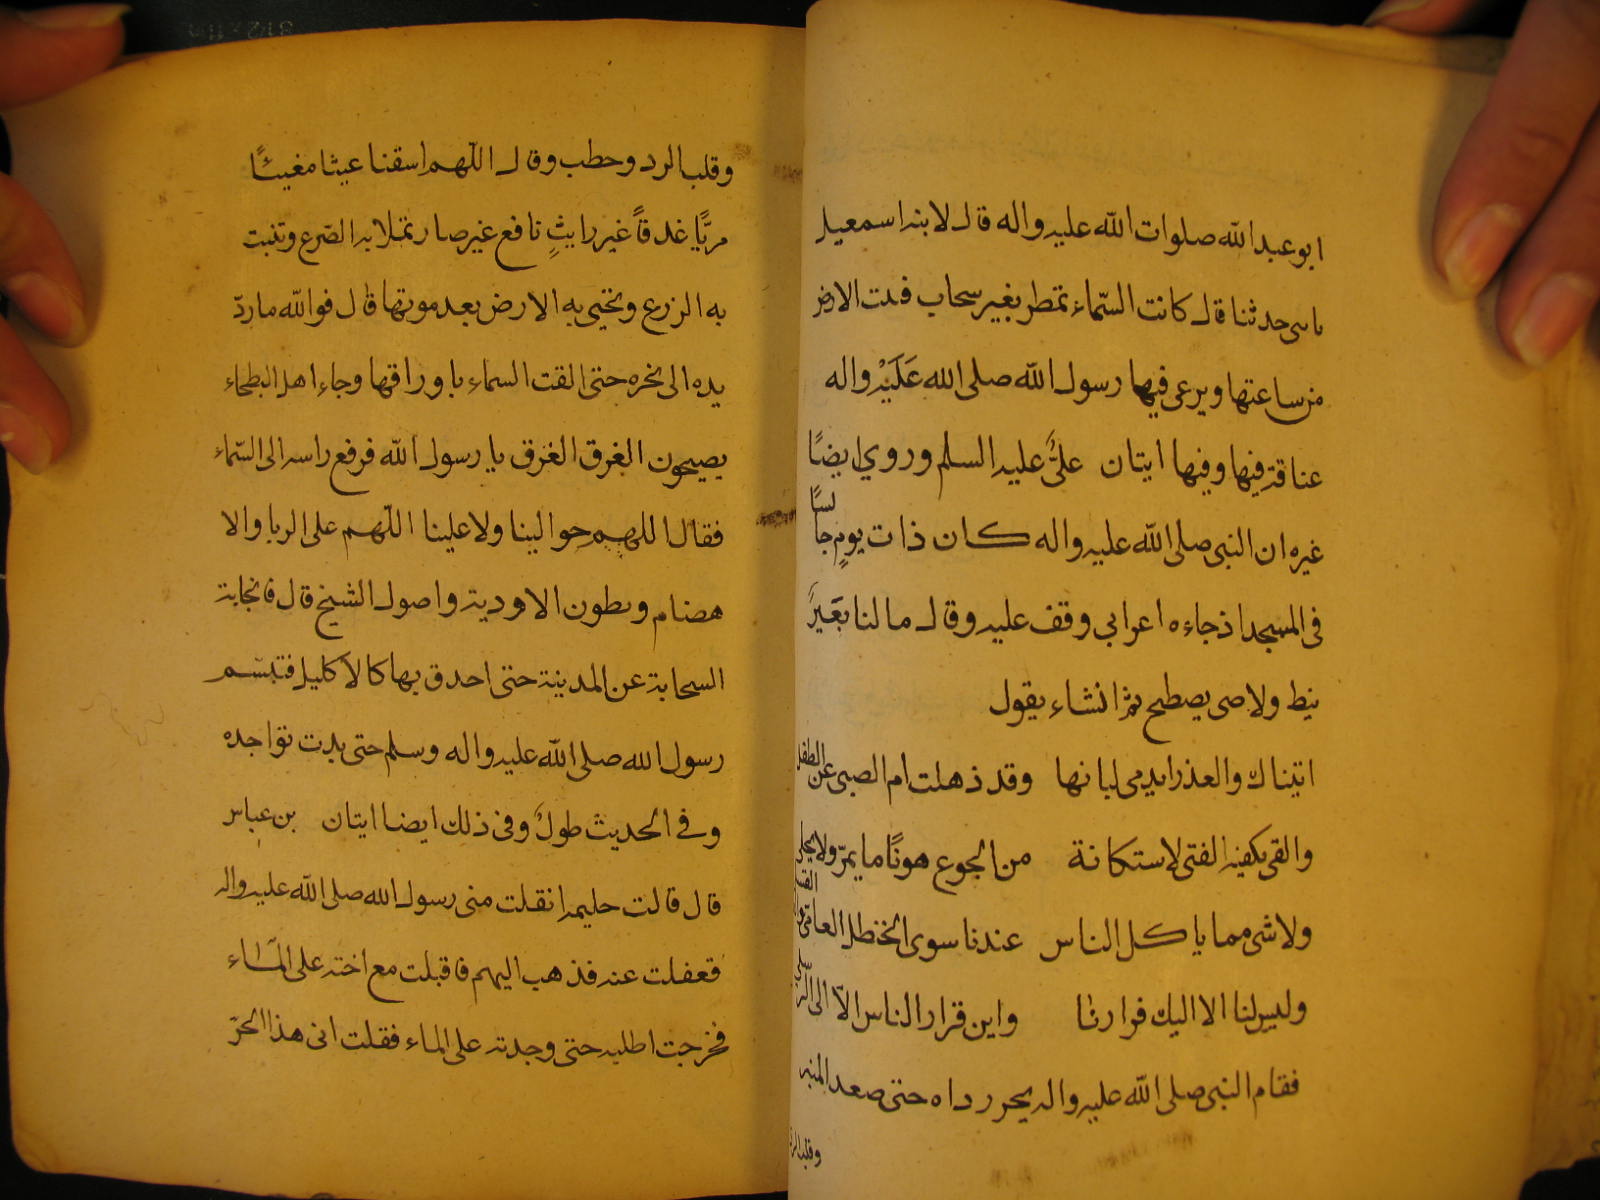 ابو عبد الله صلوات الله عليه واله قال لابنه اسمعيل
يابنى حدثنا قال كانت السّماء تمطر بغير سحاب فدت الارض
من ساعتها ويرعى فيها رسول الله صلى الله عَلَيْه واله
عناقة فيها وفيها ايتان علىٌّ عليه السلم وروي ايضًا
غيره ان النبى صلى الله عليه واله كان ذات يومٍ جالسًا
فى المسجد اذ جاءه اعرابي وقف عليه وقال ما لنا بَعَيرٌ
ينط ولا صى يصطبح ثم انشاء يقول
اتيناك والعذرا يدمى لبانها وقد ذهلت ام الصبى عن الطفل
والقى بكفيه الفتى لاستكانة من الجوع هونًا ما يمرّ ولا يحلى
ولا شى مما ياكل الناس عندنا سوى الحنظل العامّى
وليس لنا الا اليك فرارنا واين قرار الناس الّا الى الرّسل
فقام النبى صلى الله عليه واله يجر رداه حتى صعد المنبر
وقلب الرد
وقلب الرد وحطب وقال اللّهم اسقنا غيثا مغيثًا
مريًّا غدقًا غير رايثٍ نافع غير صار تملا به الضّرع وتنبت
به الزرع وتحيى به الارض بعد موتها قال فوالله ماردّ
يده الى نحره حتى القت السماء باوراقها وجاء اهل البطحاء
يصيحون الغرق الغرق يا رسول الله فرفع راسه الى السّماء
فقال اللهم حوالينا ولا علينا اللّهم على الربا والا
هضام وبطون الاودية واصول الشيخ قال فانجابة
السحابة عن المدينة حتى احدق بها كالاكليل فتبسّم
رسول الله صلى الله عليه واله وسلم حتى بدت نواجده
وفي الحديث طولٌ وفى ذلك ايضا ايتان بن عباس
قال قالت حليمه انقلت منى رسول الله صلى الله عليه واله
فعفلت عنه فذهب اليهم فاقبلت مع اخته على المآء
فخرجت اطلبه حتى وجدته على الماء فقلت انى هذا الحرّ